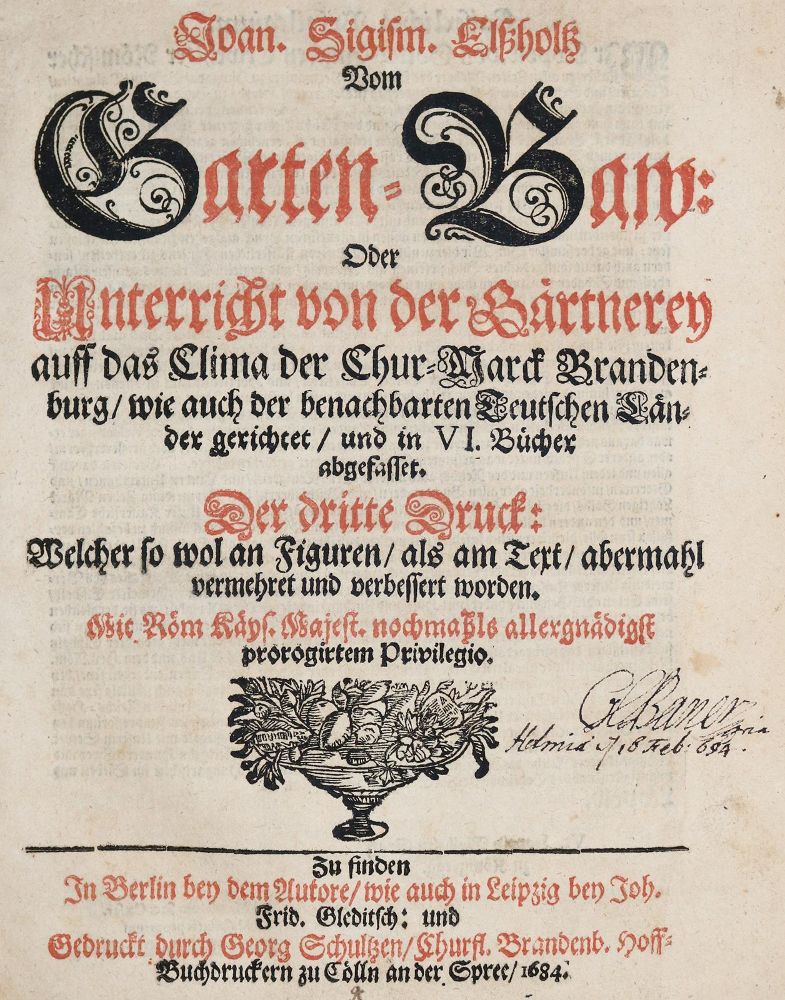 Joan. Sigism. Elßholtz
Vom
Garten-Baw:
Oder
Unterricht von der Gärtnerey
auff das Clima der Chur-Marck Branden-
burg/ wie auch der benachbarten Teutschen Län-
der gerichtet/ und in VI. Bücher
abgefasset.
Der dritte Druck:
Welcher so wol an Figuren/ als am Text/ abermahl
vermehret und verbessert worden.
Mit Röm Käys. Majest. nochmahls allergnädigst
prorogirtem Privilegio.
Holmiæ 16 Feb: 694.
Zu finden
In Berlin bey dem Autore/ wie auch in Leipzig bey Joh.
Frid. Gleditsch: und
Gedruckt durch Georg Schultzen/ Churfl. Brandenb. Hoff-
Buchdruckern zu Cölln an der Spree/ 1684.